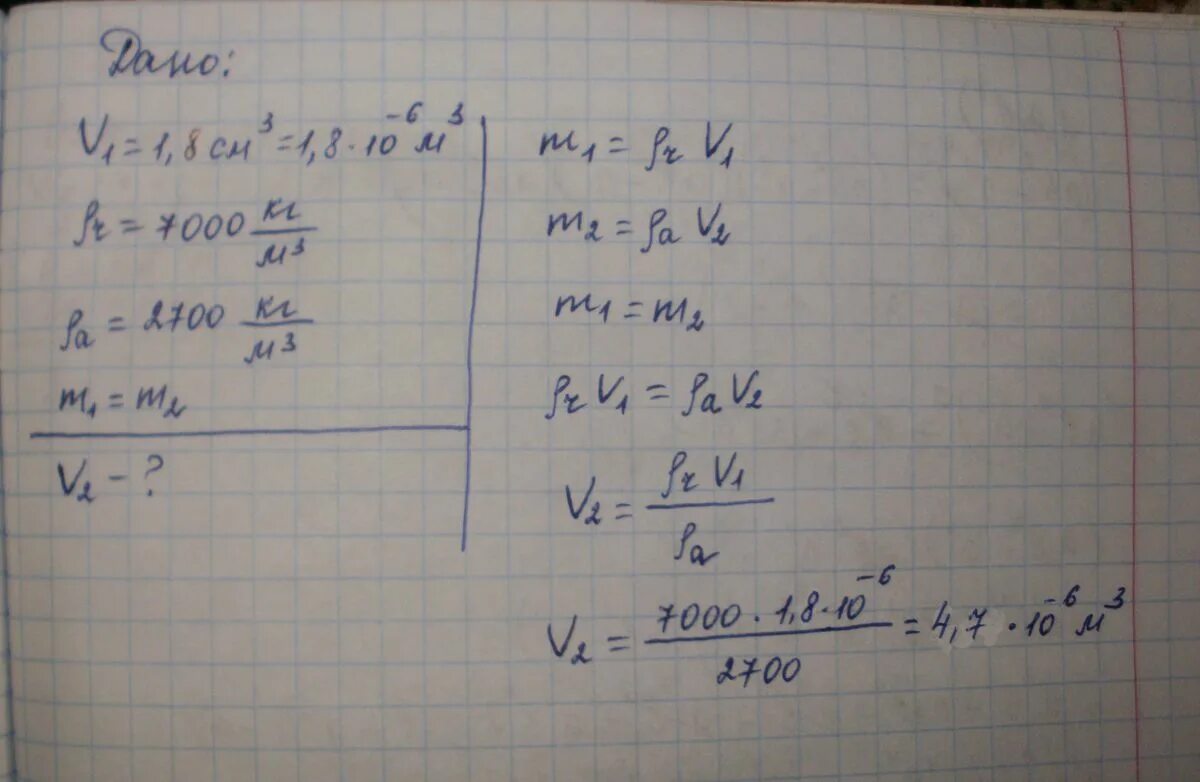 Дано:
V₁ = 1,8 см³ = 1,8 · 10⁻⁶ м³
ρч = 7000 кг/м³
ρа = 2700 кг/м³
m₁ = m₂
V₂ - ?
m₁ = ρч V₁
m₂ = ρа V₂
m₁ = m₂
ρч V₁ = ρа V₂
V₂ = ρч V₁ / ρа
V₂ = 7000 · 1,8 · 10⁻⁶ / 2700 = 4,7 · 10⁻⁶ м³